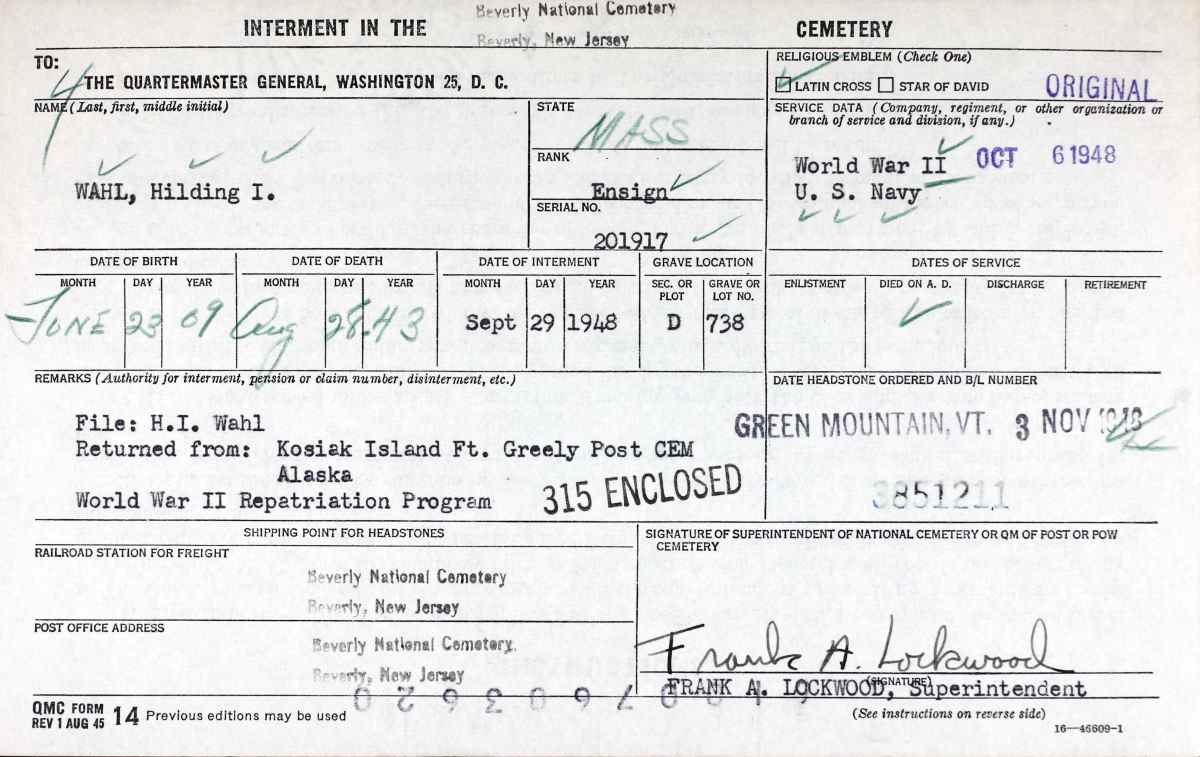 INTERMENT IN THE Beverly National Cemetery CEMETERY
Beverly, New Jersey
TO:
THE QUARTERMASTER GENERAL, WASHINGTON 25, D. C.
RELIGIOUS EMBLEM (Check One)
LATIN CROSS STAR OF DAVID
ORIGINAL
NAME (Last, first, middle initial)
WAHL, Hilding I.
STATE
MASS
RANK
Ensign
SERIAL NO.
201917
SERVICE DATA (Company, regiment, or other organization or
branch of service and division, if any.)
World War II OCT 6 1948
U. S. Navy
DATE OF BIRTH DATE OF DEATH DATE OF INTERMENT GRAVE LOCATION DATES OF SERVICE
MONTH DAY YEAR MONTH DAY YEAR MONTH DAY YEAR SEC. OR PLOT GRAVE OR LOT NO. ENLISTMENT DIED ON A. D. DISCHARGE RETIREMENT
JUNE 23 09 Aug 28 43 Sept 29 1948 D 738
REMARKS (Authority for interment, pension or claim number, disinterment, etc.)
File: H.I. Wahl
Returned from: Kosiak Island Ft. Greely Post CEM
Alaska
World War II Repatriation Program
315 ENCLOSED
DATE HEADSTONE ORDERED AND B/L NUMBER
GREEN MOUNTAIN, VT. 3 NOV 1948
3851211
SHIPPING POINT FOR HEADSTONES
RAILROAD STATION FOR FREIGHT
Beverly National Cemetery
Beverly, New Jersey
POST OFFICE ADDRESS
Beverly National Cemetery,
Beverly, New Jersey
SIGNATURE OF SUPERINTENDENT OF NATIONAL CEMETERY OR QM OF POST OR POW
CEMETERY
Frank A. Lockwood
(SIGNATURE)
FRANK A. LOCKWOOD, Superintendent
QMC FORM
REV 1 AUG 45 14 Previous editions may be used
(See instructions on reverse side)
16—46609-1